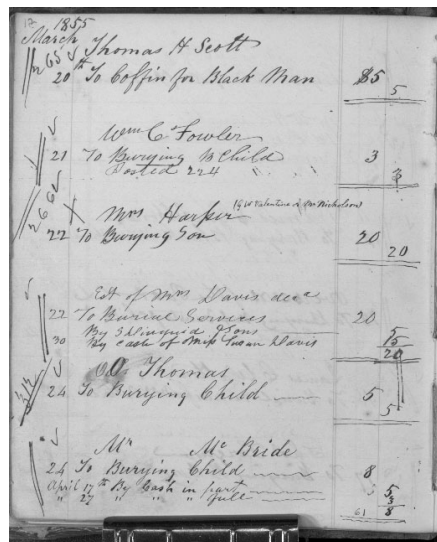 17 1855
March Thomas H Scott
20th To Coffin for Black Man $5 5
Wm C Fowler
21 To Burying B Child 3
Posted 224 3
Mrs Harper (Geo Valentine & Mr Nicholson)
22 To Burying Son 20 20
Est of Mrs Davis decd
22 To Burial Services 20
By & Sons 5
30 By Cash of Miss Susan Davis 15
20
Thomas
24 To Burying Child 5 5
Mr Mc Bride
24 To Burying Child 8
April 17th By Cash in part 5
" 27 " " " full 3
61 8